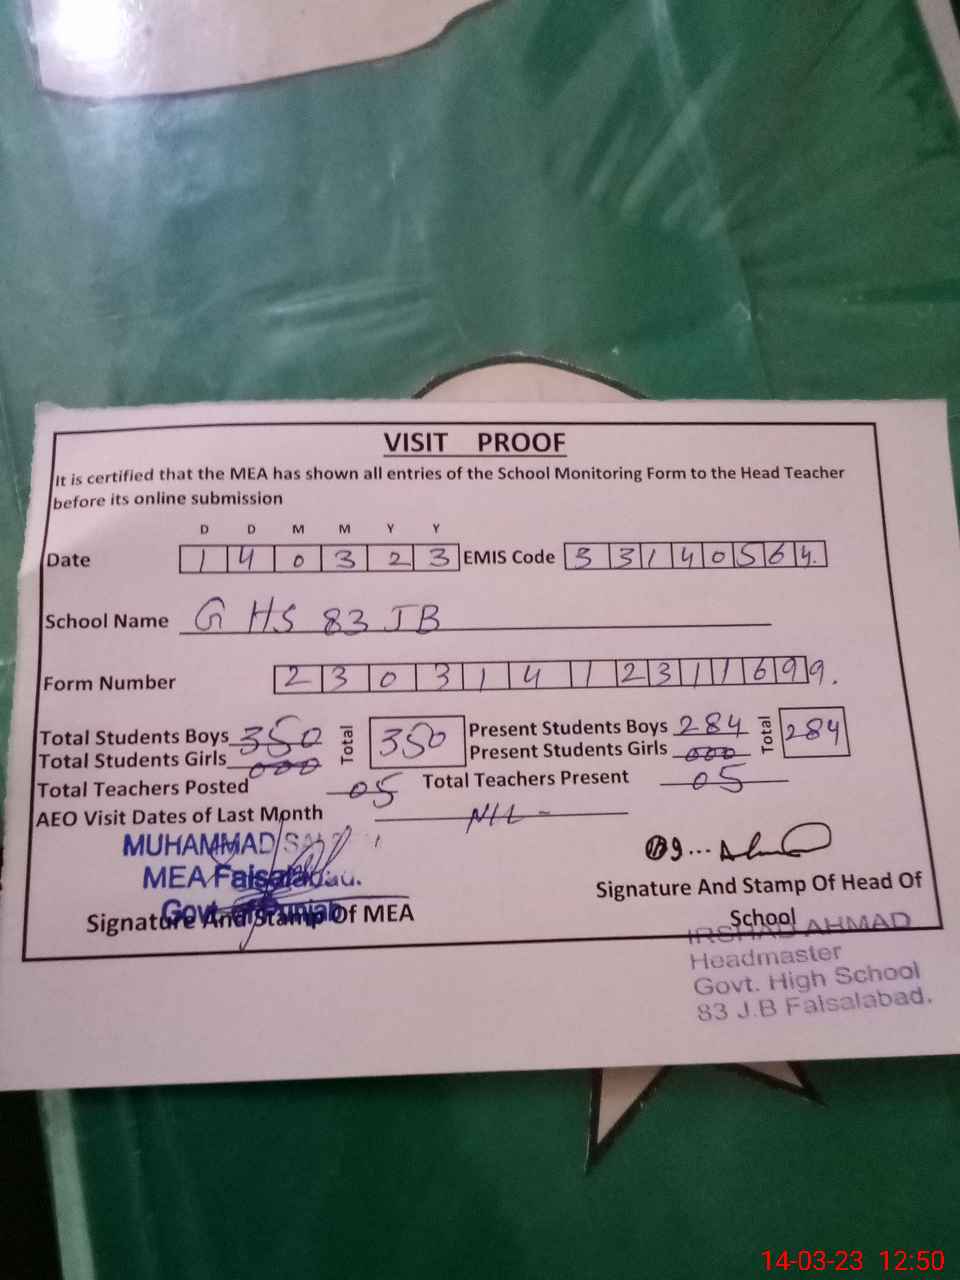 VISIT PROOF
It is certified that the MEA has shown all entries of the School Monitoring Form to the Head Teacher
before its online submission
D D M M Y Y
Date 1 4 0 3 2 3 EMIS Code 3 3 1 4 0 5 6 4.
School Name G HS 83 JB
Form Number 2 3 0 3 1 4 1 2 3 1 1 6 9 9.
Total Students Boys 350 Total 350 Present Students Boys 284 Total 284
Total Students Girls 000 Present Students Girls 000
Total Teachers Posted 05 Total Teachers Present 05
AEO Visit Dates of Last Month NIL -
MUHAMMAD
MEA Faisalabad.
Govt. of Punjab
Signature And Stamp Of MEA
Signature And Stamp Of Head Of
School
IRSHAD AHMAD
Headmaster
Govt. High School
83 J.B Faisalabad.
14-03-23 12:50